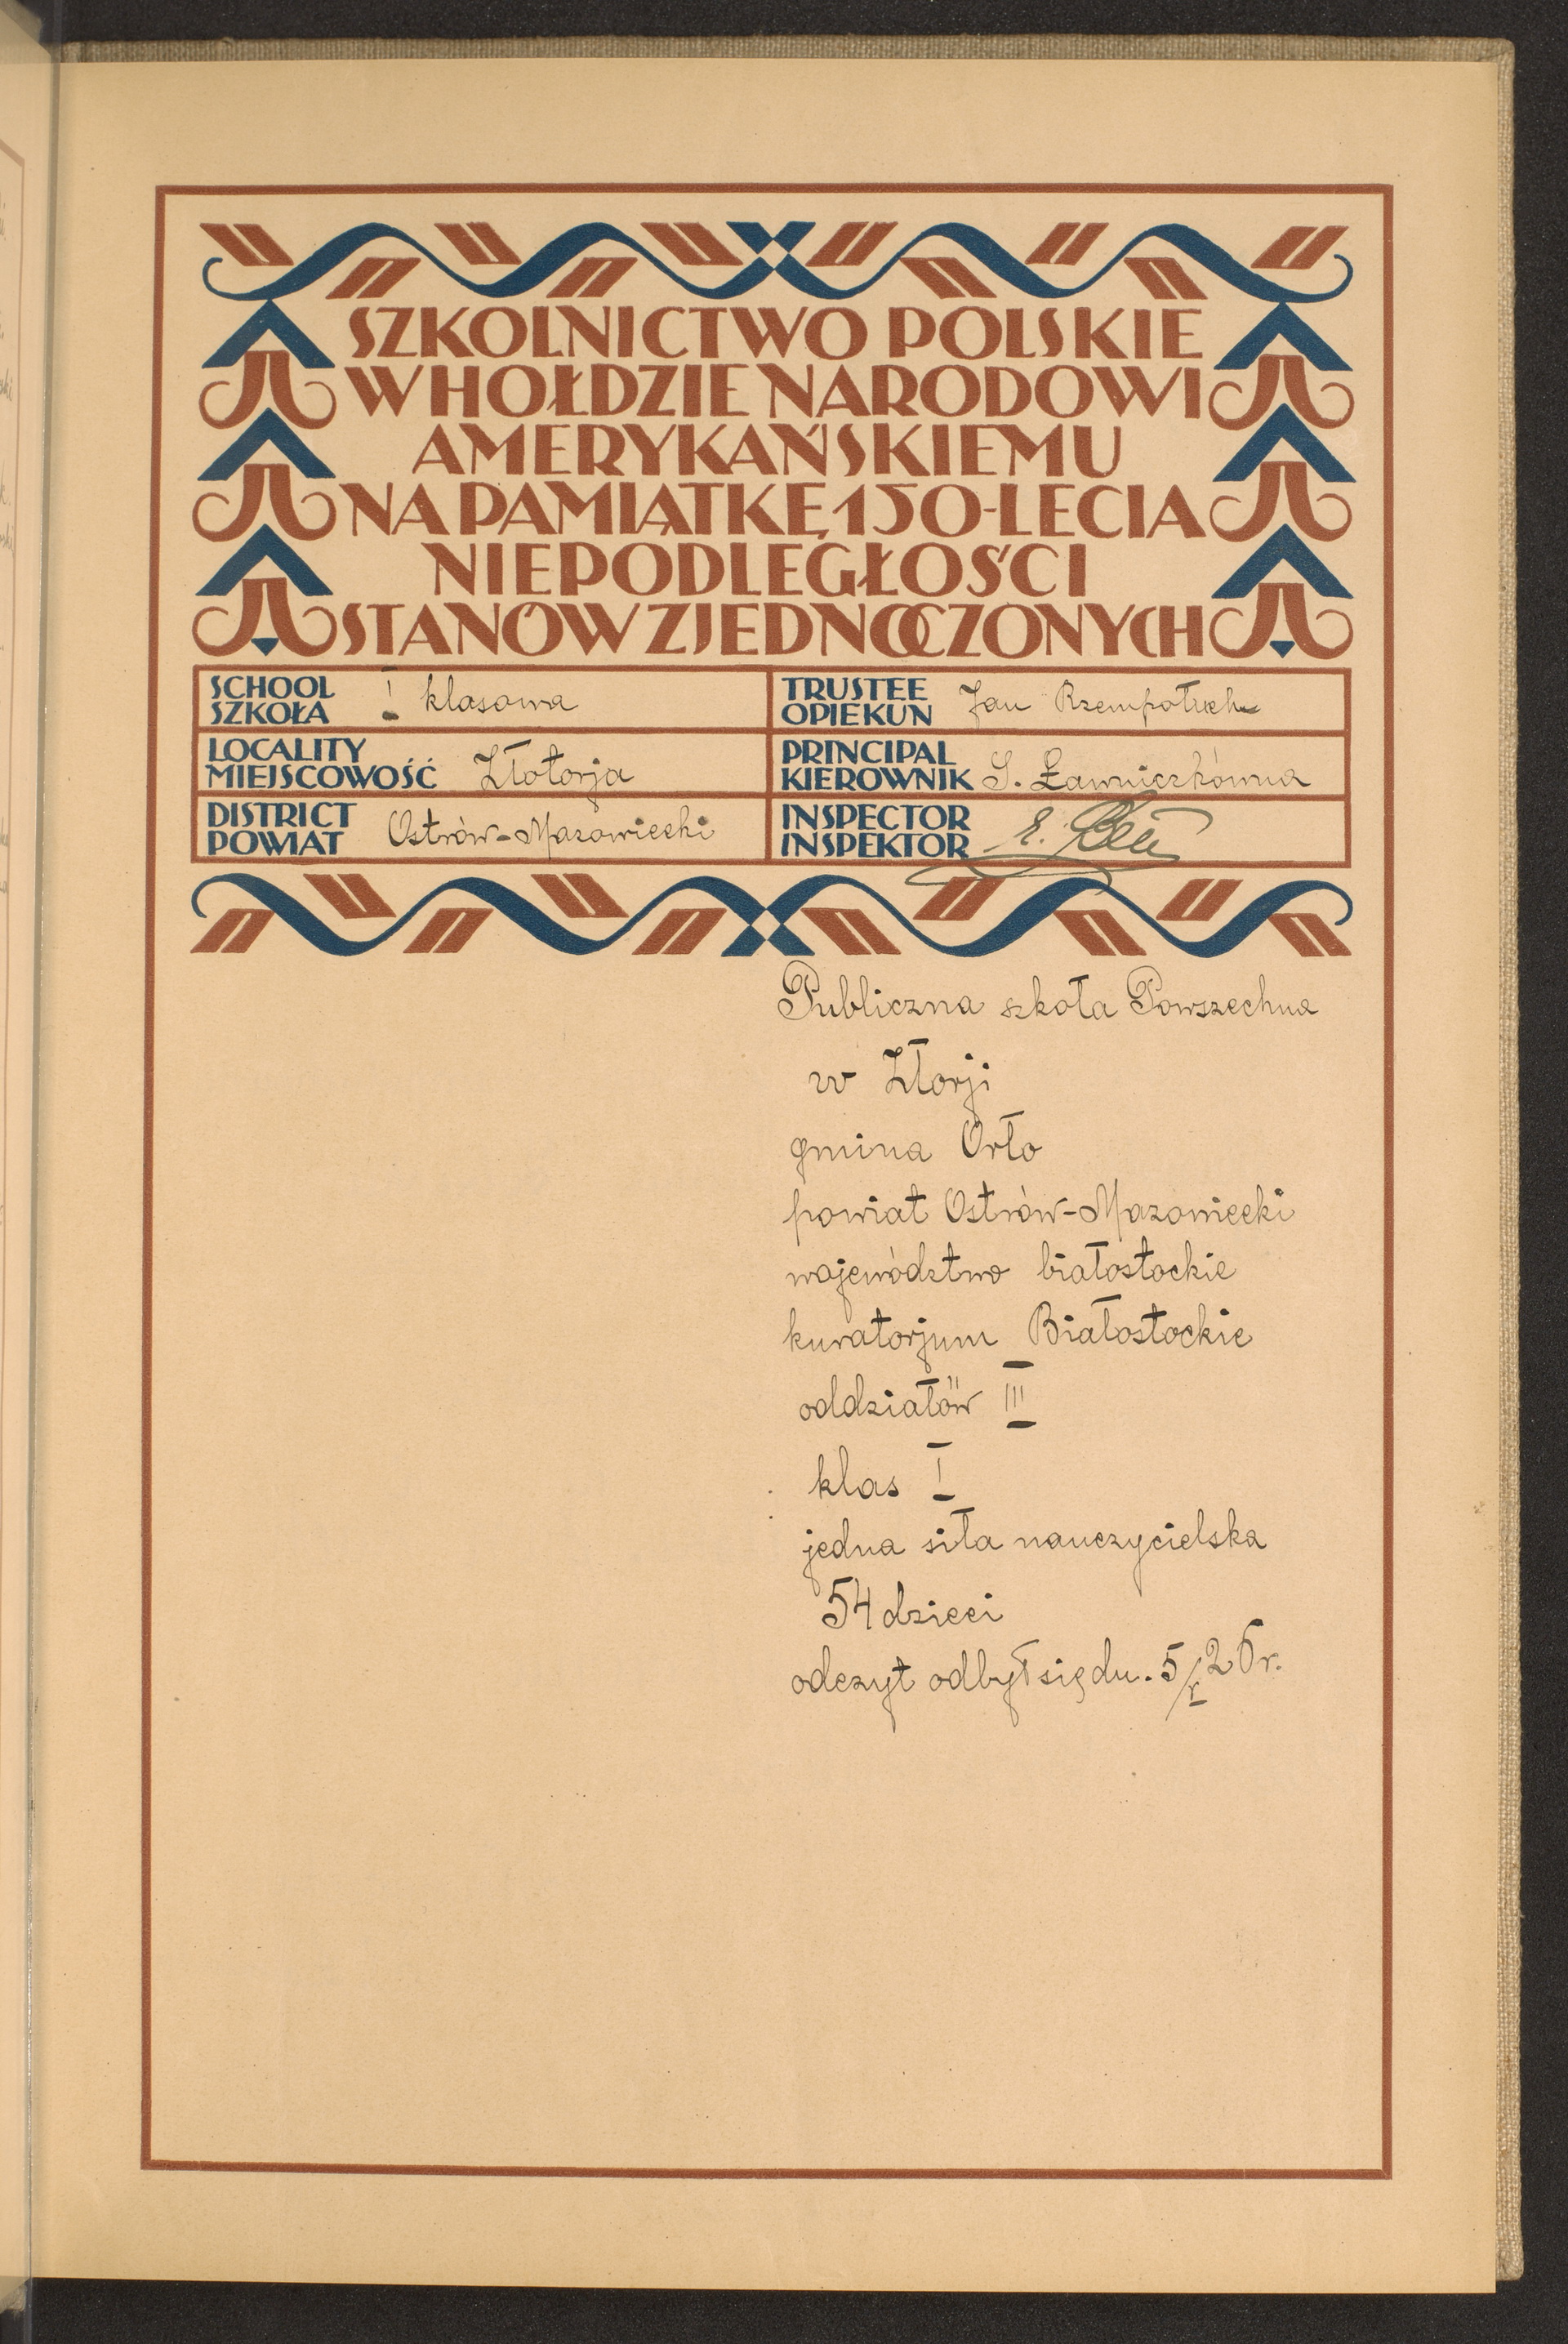 SZKOLNICTWO POLSKIE
W HOŁDZIE NARODOWI
AMERYKAŃSKIEMU
NA PAMIĄTKĘ 150-LECIA
NIEPODLEGŁOŚCI
STANÓW ZJEDNOCZONYCH
SCHOOL
SZKOŁA I klasowa
TRUSTEE
OPIEKUN Jan Rzempołuch
LOCALITY
MIEJSCOWOŚĆ Złotorja
PRINCIPAL
KIEROWNIK S. Ławniczkówna
DISTRICT
POWIAT Ostrów-Mazowiecki
INSPECTOR
INSPEKTOR
Publiczna szkoła Powszechna
w Złorji
gmina Orło
powiat Ostrów-Mazowiecki
województwo białostockie
kuratorjum Białostockie
oddziałów III
klas I
jedna siła nauczycielska
54 dzieci
odczyt odbył się dn. 5/V 26 r.